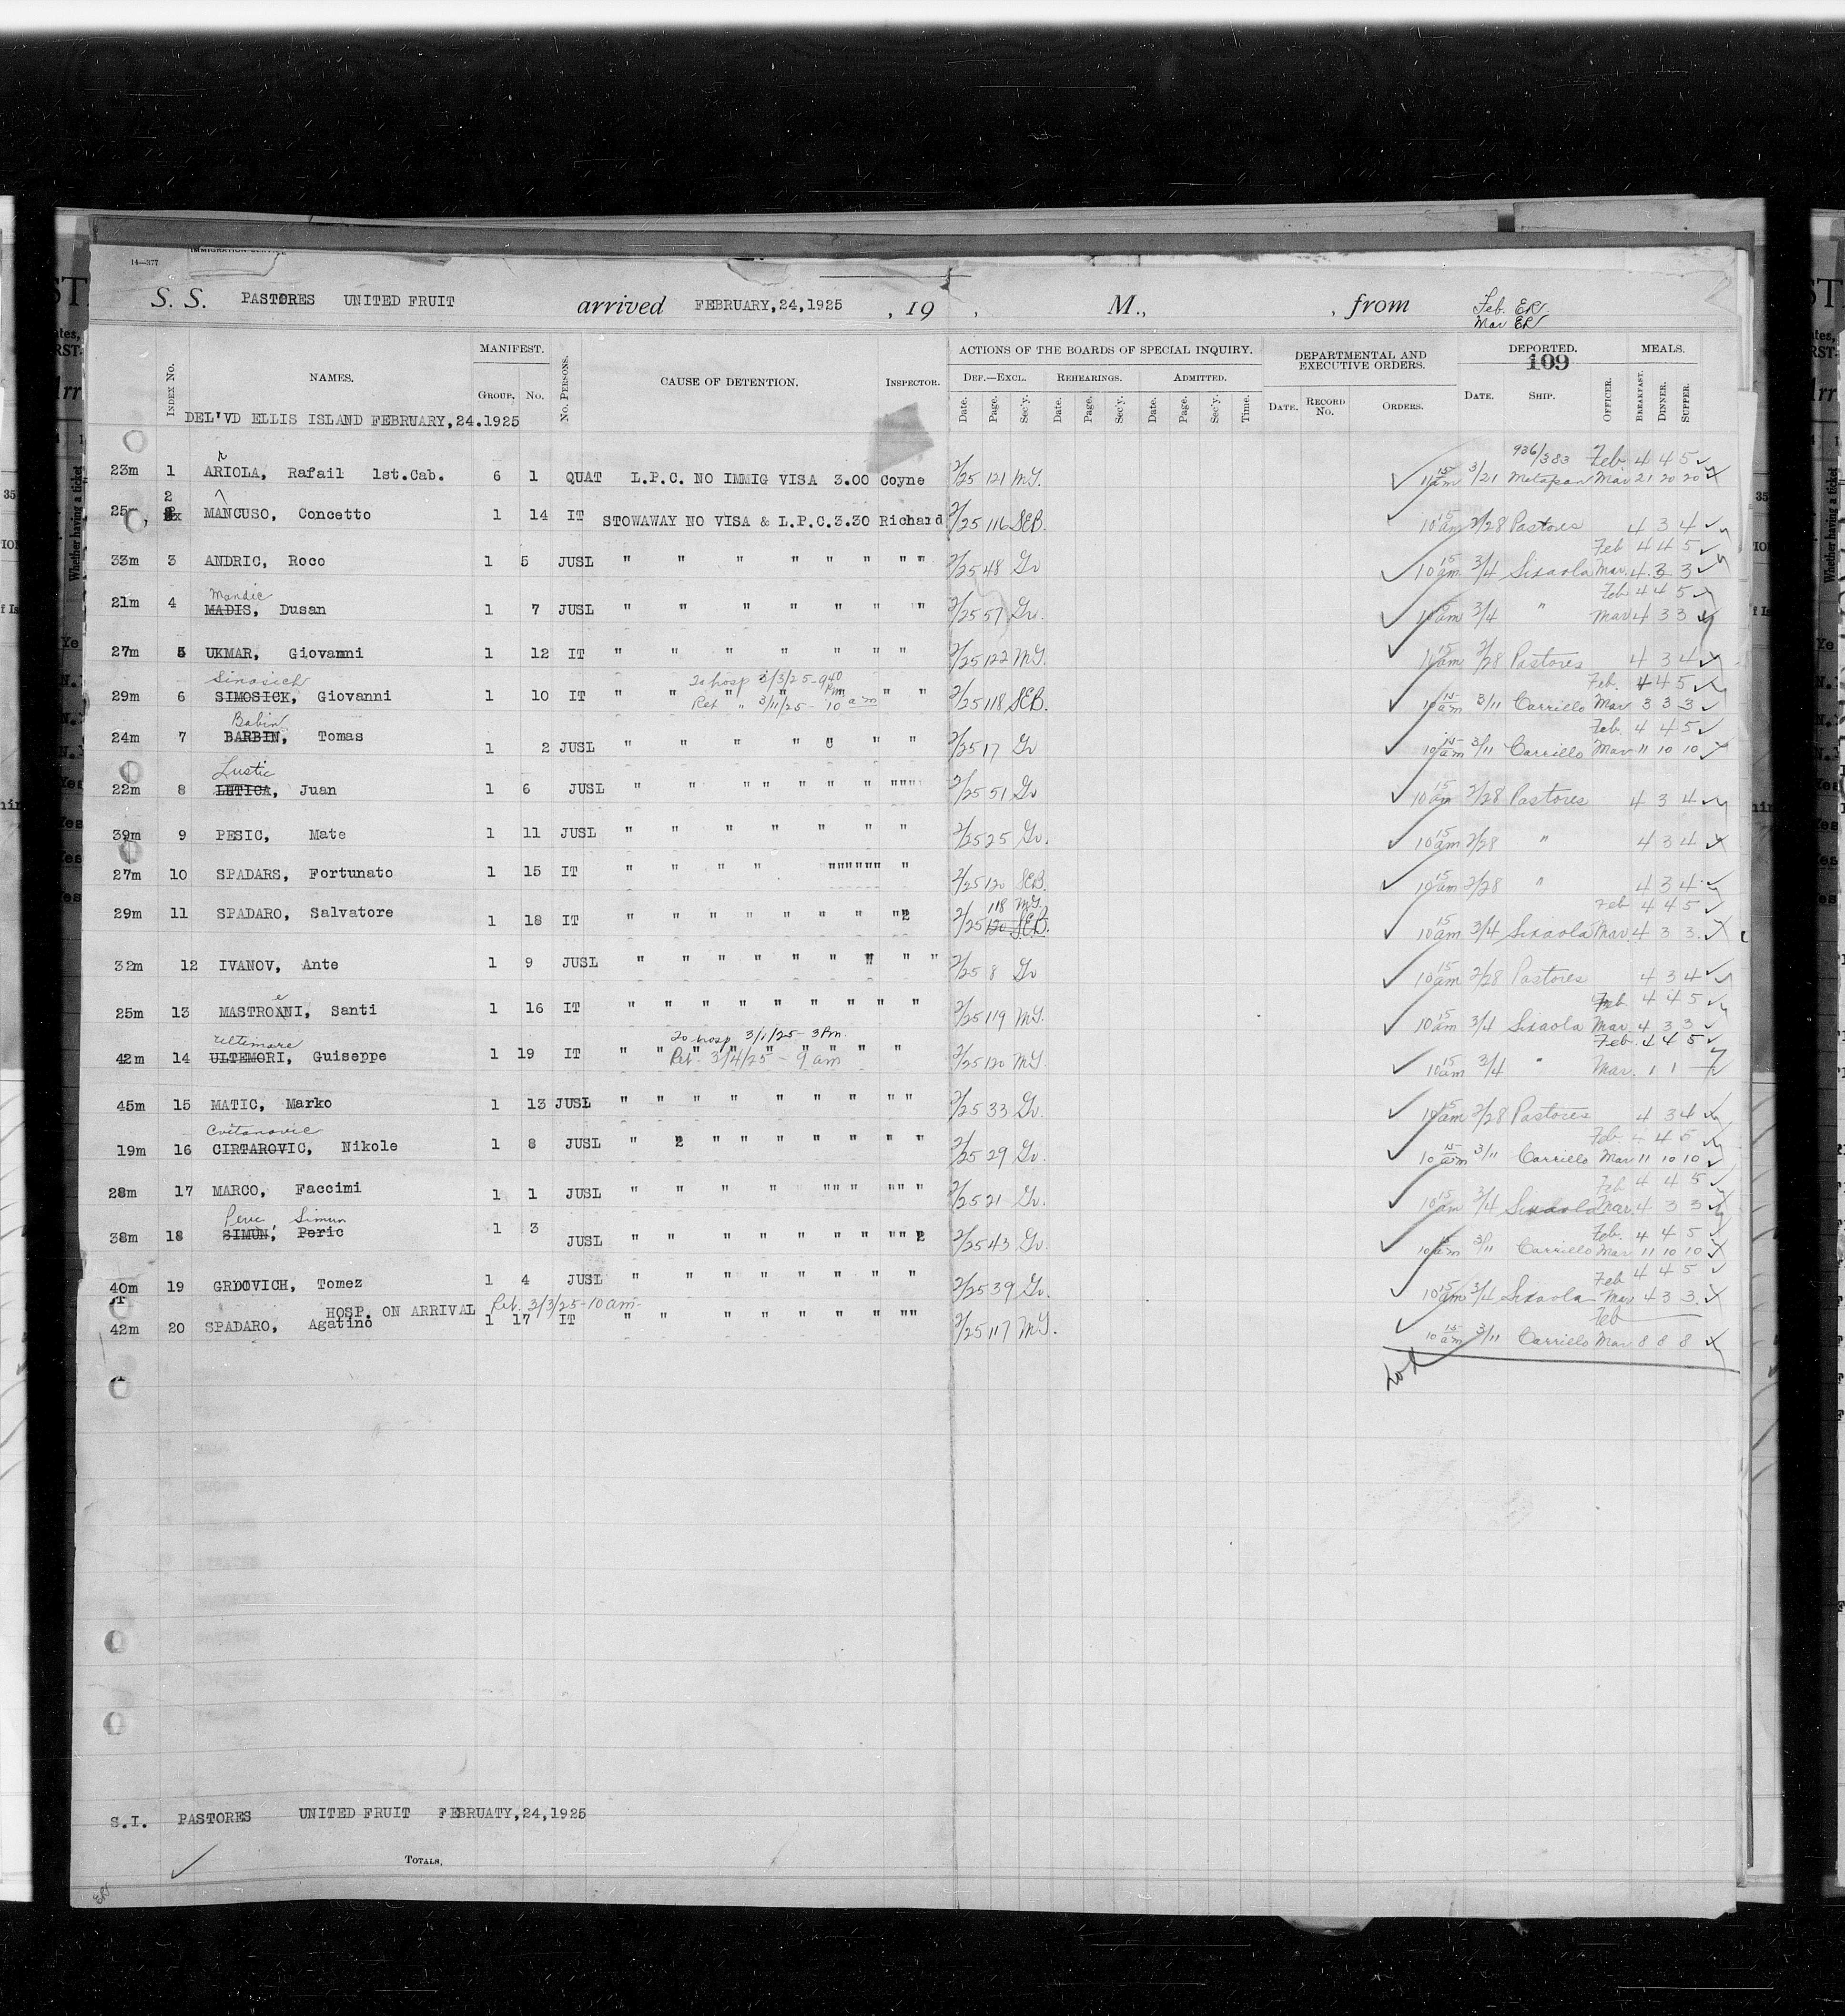 IMMIGRATION SERVICE
14—377
S. S. PASTORES UNITED FRUIT arrived FEBRUARY,24,1925 , 19 , M., , from Feb. ER
Mar ER
INDEX NO. NAMES. MANIFEST. GROUP, NO. NO. PERSONS. CAUSE OF DETENTION. INSPECTOR. ACTIONS OF THE BOARDS OF SPECIAL INQUIRY. DEF.—EXCL. REHEARINGS. ADMITTED. DEPARTMENTAL AND EXECUTIVE ORDERS. DEPORTED. 109 MEALS.
Date. Page. Sec'y. Date. Page. Sec'y. Date. Page. Sec'y. Time. DATE. RECORD No. ORDERS. DATE. SHIP. OFFICER. BREAKFAST. DINNER. SUPPER.
DEL'VD ELLIS ISLAND FEBRUARY,24.1925
936/383 Feb. 4 4 5
23m 1 ARIOLA, Rafail 1st.Cab. 6 1 QUAT L.P.C. NO IMMIG VISA 3.00 Coyne 2/25 121 MG. 11 15 am 3/21 Metapan Mar 21 20 20
25m 2 MANCUSO, Concetto 1 14 IT STOWAWAY NO VISA & L.P.C.3.30 Richard 2/25 116 SEB. 10 15 am 2/28 Pastores 4 3 4
Feb 4 4 5
33m 3 ANDRIC, Roco 1 5 JUSL " " " " " " " " 2/25 48 Gv 10 15 am 3/4 Sixaola Mar. 4 3 3
Mandic Feb 4 4 5
21m 4 MADIS, Dusan 1 7 JUSL " " " " " " " 2/25 57 Gv. 10 am 3/4 " Mar 4 3 3
27m 5 UKMAR, Giovanni 1 12 IT " " " " " " " 2/25 122 MG. 10 15 am 2/28 Pastores 4 3 4
Sinosich To hosp 3/3/25-9 40 Pm Feb. 4 4 5
29m 6 SIMOSICK, Giovanni 1 10 IT " " " " " " Ret " 3/11/25 - 10 am 2/25 118 SEB. 10 15 am 3/11 Carrillo Mar 3 3 3
Babin Feb. 4 4 5
24m 7 BARBIN, Tomas 1 2 JUSL " " " " " " " 2/25 17 Gv 10 15 am 3/11 Carrillo Mar 11 10 10
Lustic
22m 8 LETICA, Juan 1 6 JUSL " " " " " " " """" 2/25 51 Gv 10 15 am 2/28 Pastores 4 3 4
39m 9 PESIC, Mate 1 11 JUSL " " " " " " " 2/25 25 Gv. 10 15 am 2/28 " 4 3 4
27m 10 SPADARS, Fortunato 1 15 IT " " " " """""" " 2/25 120 SEB. 10 15 am 2/28 " 4 3 4
118 MG. Feb 4 4 5
29m 11 SPADARO, Salvatore 1 18 IT " " " " " " " " 2/25 120 SEB. 10 15 am 3/4 Sixaola Mar. 4 3 3
32m 12 IVANOV, Ante 1 9 JUSL " " " " " " " " " 2/25 8 Gv 10 15 am 2/28 Pastores 4 3 4
Feb 4 4 5
25m 13 MASTROENI, Santi 1 16 IT " " " " " " " " " 2/25 119 MG. 10 15 am 3/4 Sixaola Mar. 4 3 3
Ultimare To hosp 3/1/25 - 3 Pm. Feb. 4 4 5
42m 14 ULTEMORI, Guiseppe 1 19 IT " " " " " " " " " Ret. 3/4/25 - 9 am 2/25 120 MG. 10 15 am 3/4 " Mar. 1 1 —
45m 15 MATIC, Marko 1 13 JUSL " " " " " " " " " 2/25 33 Gv. 10 15 am 2/28 Pastores 4 3 4
Cvitanovic Feb. 4 4 5
19m 16 CIRTAROVIC, Nikole 1 8 JUSL " 2 " " " " " " " 2/25 29 Gv. 10 15 am 3/11 Carrillo Mar 11 10 10
Feb 4 4 5
28m 17 MARCO, Faccimi 1 1 JUSL " " " " """ """ 2/25 21 Gv. 10 15 am 3/4 Sixaola Mar. 4 3 3
Peric Simun Feb. 4 4 5
38m 18 SIMUN, Peric 1 3 JUSL " " " " " " " "" 2 2/25 43 Gv. 10 15 am 3/11 Carrillo Mar 11 10 10
Feb 4 4 5
40m 19 GRDOVICH, Tomez 1 4 JUSL " " " " " " " " 2/25 39 Gv. 10 15 am 3/4 Sixaola Mar 4 3 3
HOSP. ON ARRIVAL Ret. 3/3/25-10 am. Feb —
42m 20 SPADARO, Agatino 1 17 IT " " " " " " " "" 2/25 117 MG. 10 15 am 3/11 Carrillo Mar 8 8 8
S.I. PASTORES UNITED FRUIT FEBRUATY,24,1925
TOTALS,
ER